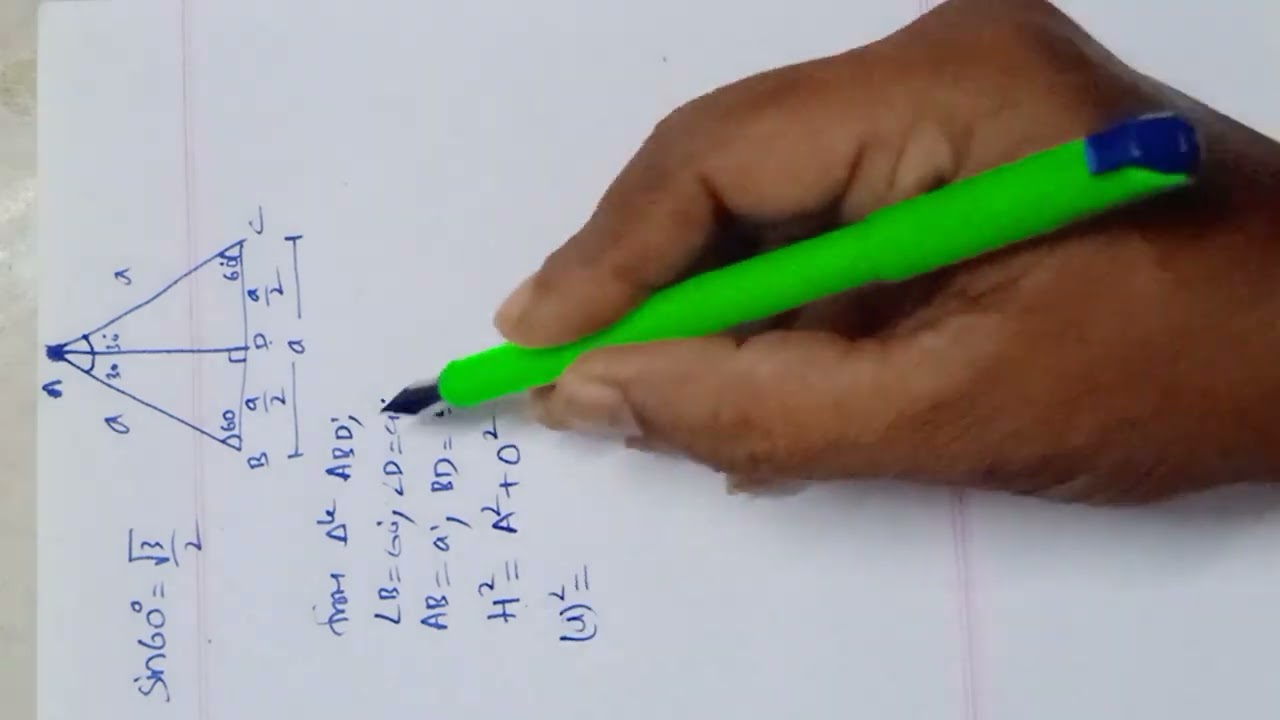 sin60°= √3/2
A
a a
30 30
60 60
B a/2 D a/2 C
a
from Δle ABD,
∠B=60°, ∠D=9
AB=a, BD=
H²= A²+O²
(a)²=